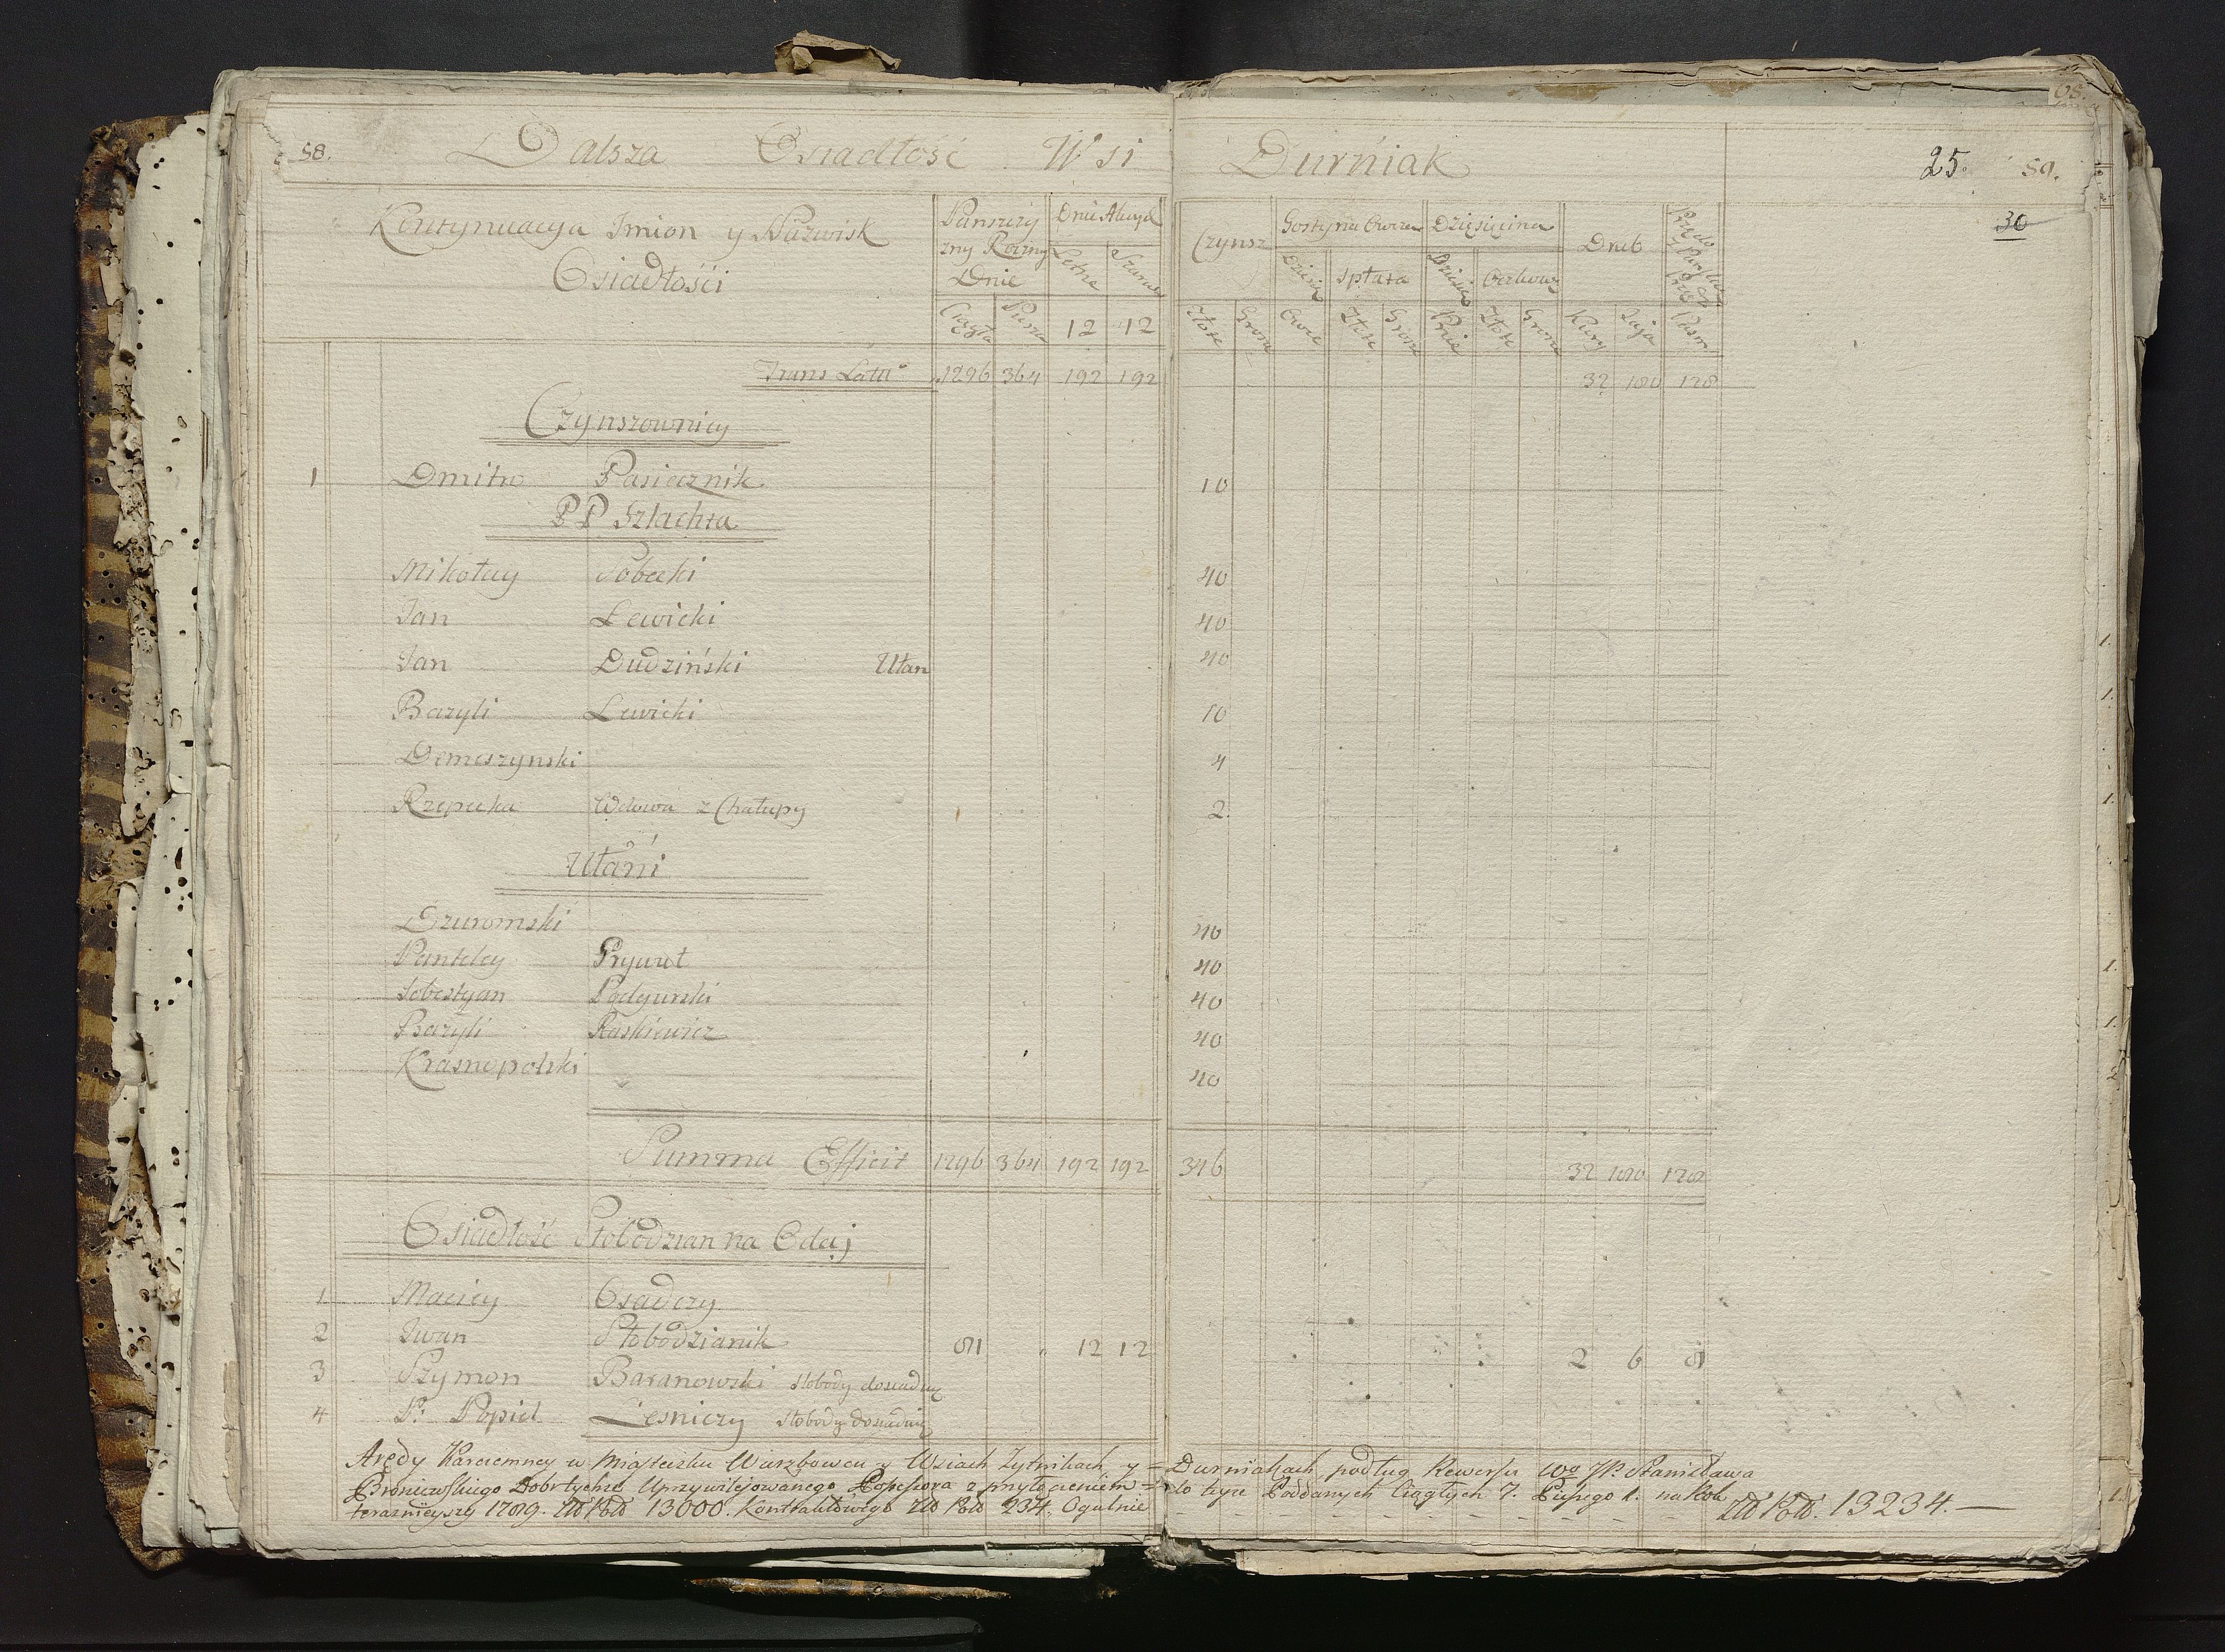 58. Dalsza Osiadłość Wsi Durniak 25. 59.
30
Kontynuacya Imion y Nazwisk
Osiadłości
Panszczyzny Roczny Dnie
Ciągła Piesza
Letnie
12 12
Czynsz
Złote Grosze
Dziesięcina
Spłata
Owce Złote Grosze
Złote Grosze
Drub
Kury Jaja
Trans Latū 1296 364 192 192 32 180 128
Czynszownicy
1 Dmitro Pasiecznik 10
PP Szlachta
Mikołay Sobecki 40
Jan Lewicki 40
Jan Dudziński Ułan 40
Bazyli Lewicki 10
Demeszynski 4
Rzepecka Wdowa z Chałupy 2.
Ułani
Dzuromski 40
Panteley Prywet 40
Sobestyan Podgurski 40
Bazyli Raskiewicz 40
Krasnopolski 40
Summa Efficit 1296 364 192 192 346 32 180 128
Osiadłość Słobodzian na Odaj
1 Maciey Osadczy
2 Iwan Słobodzianik 81 12 12 2 6 8
3 Szymon Baranowski słobody dosiaduje
4 P. Popiel Lesniczy słobody dosiaduje
Arędy Karczemney w Miasteczku Warzbowcu y Wsiach Zytnikach y = Durniakach podług Rewersu Wo JP. Stanisława
Broniewskiego Dobrtychże Uprzywilejowanego Popessora z przyłączeniem = do tyże Poddanych Ciągłych 7. Pieszego 1. na Rok
terazniejszy 1789. Zło Pol 13000. Kontraktowego Zło Pol 234. Ogulnie - - - - Zło Pol. 13234.—